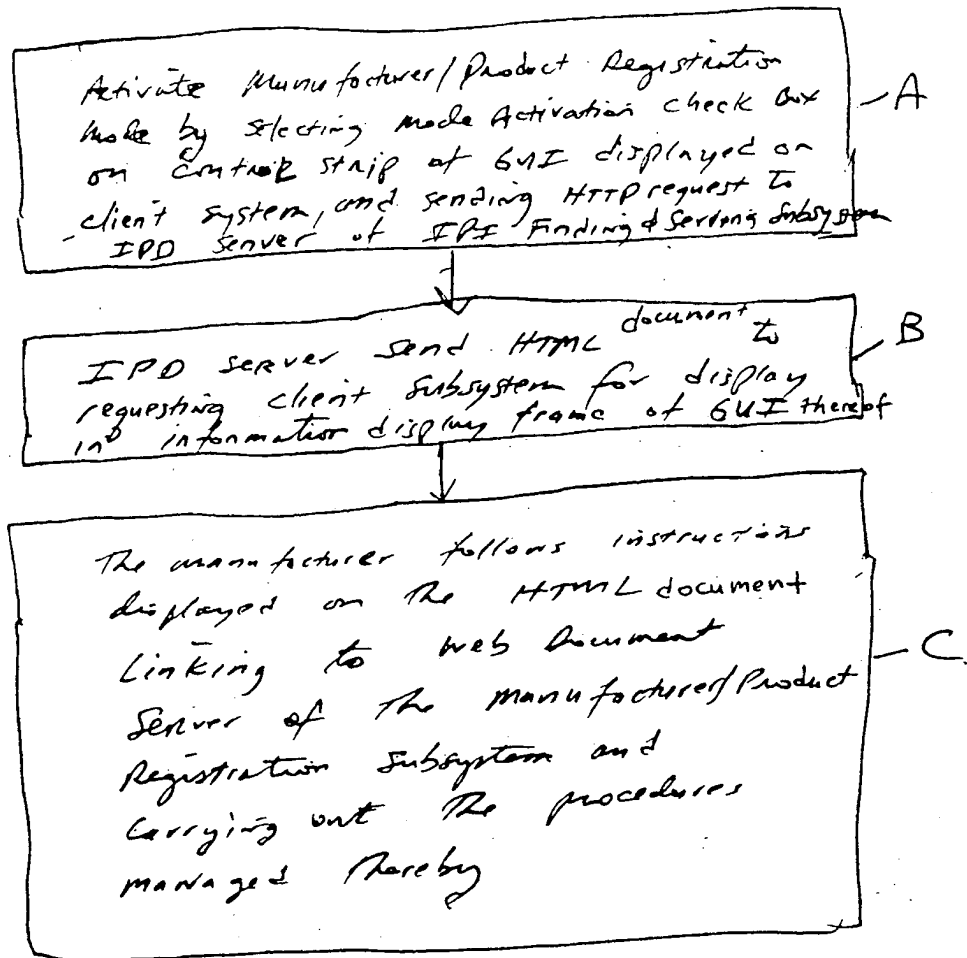 Activate Manufacturer/Product Registration
Mode by selecting mode Activation check Box
on control strip of GUI displayed on
client system, and sending HTTP request to
IPD server of IPI Finding & Serving Subsystem
A
IPD server send HTML document to
requesting client subsystem for display
in information display frame of GUI thereof
B
The manufacturer follows instructions
displayed on the HTML document
Linking to Web Document
Server of the Manufacturer/Product
Registration Subsystem and
Carrying out the procedures
managed thereby
C.